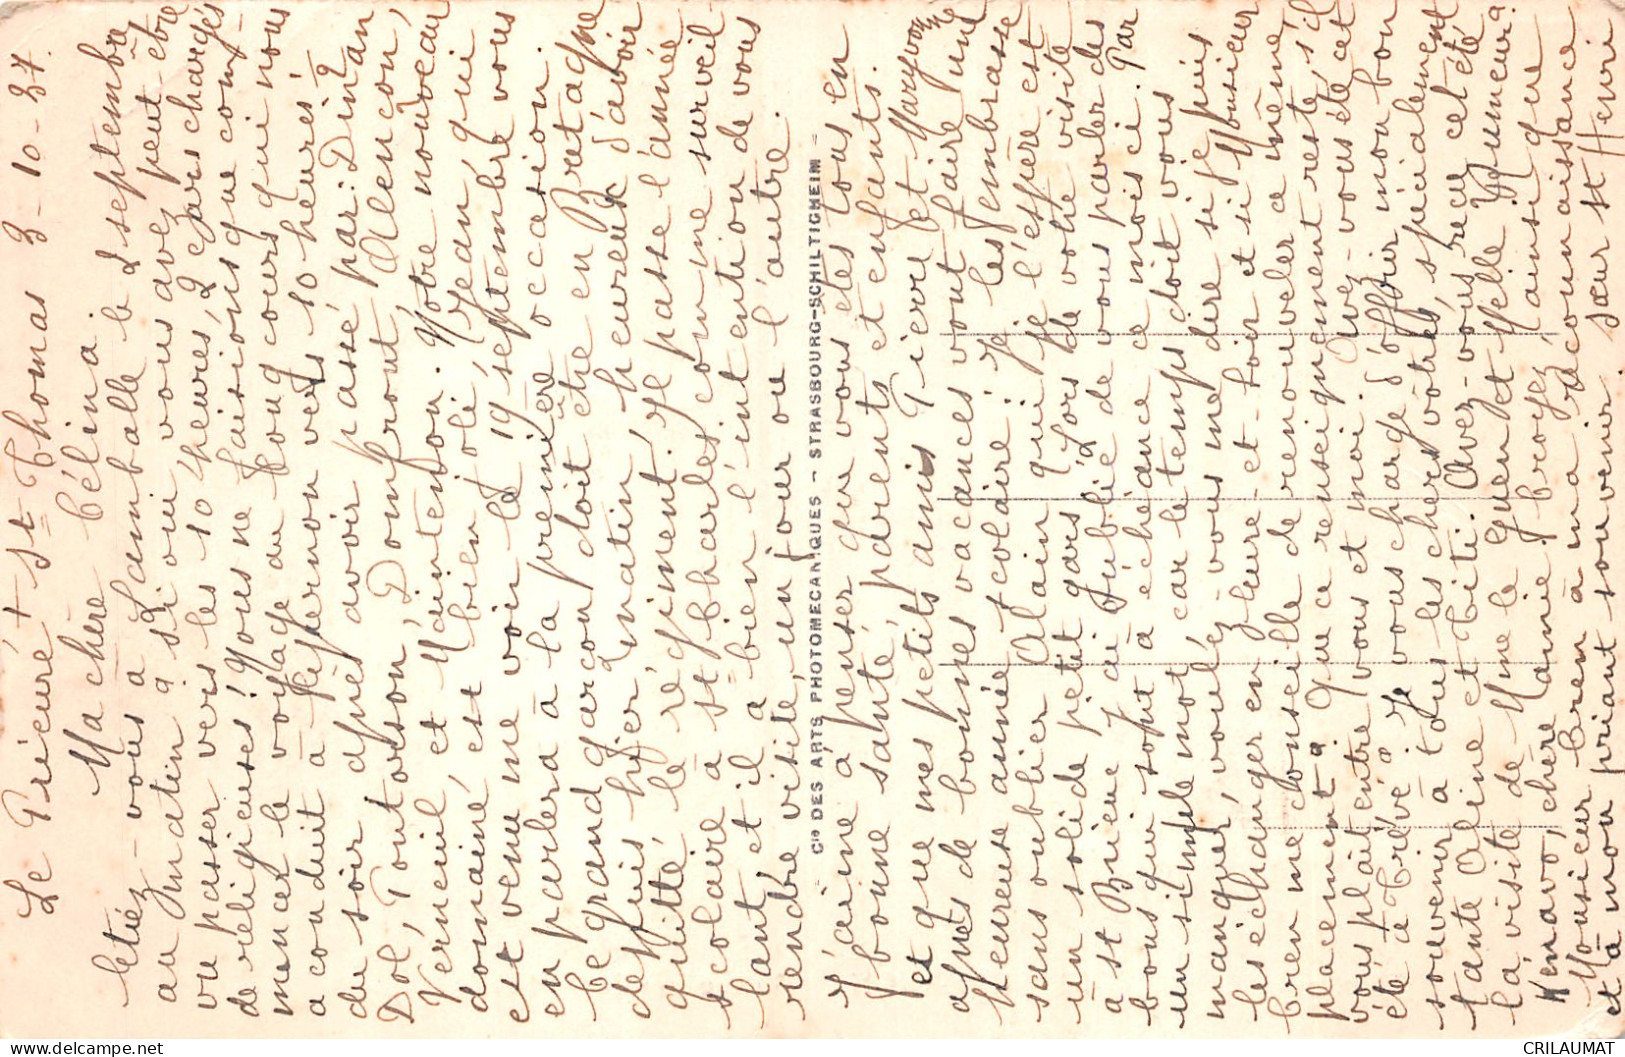 Le Prieuré + St Thomas 3-10-37.
Ma chère Célina.
Etiez-vous à Lamballe le 2 septembre
au matin? Si oui vous avez peut-être
vu passer vers les 10 heures, 2 cars chargés
de religieuses! Nous ne faisions que com-
mencer le voyage au long cours qui nous
a conduit à Epernon vers 10 heures ½
du soir après avoir passé par: Dinan
Dol, Pontorson, Domfront, Alençon,
Verneuil et Maintenon. Notre nouveau
domaine est bien joli, Jean qui
est venu me voir le 19 septembre vous
en parlera à la première occasion.
Ce grand garçon doit être en Bretagne
depuis hier matin, heureux d'avoir
quitté le régiment; il passe l'année
scolaire à St Charles comme surveil-
lant et il a bien l'intention de vous
rendre visite, un jour ou l'autre.
Cie DES ARTS PHOTOMECANIQUES - STRASBOURG-SCHILTIGHEIM
J'aime à penser que vous êtes tous en
bonne santé, parents et enfants.
et que mes petits amis Pierre et Maryvonne
après de bonnes vacances vont faire une
heureuse année scolaire; je les embrasse
sans oublier Alain qui je l'espère est
un solide petit gars. Lors de votre visite
à St Brieuc j'ai oublié de vous parler des
bons qui sont à échéance ce mois-ci. Par
un simple mot, car le temps doit vous
manquer, voulez-vous me dire si je puis
les échanger en heure-et-loir et si Monsieur
Bren me conseille de renouveler le même
placement? Que ce renseignement reste s'il
vous plait entre vous et moi. Avez-vous été cet
été à Trévé? Je vous charge d'offrir mon bon
souvenir à tous les chers vôtres, spécialement
tante Aline et Titi. Avez-vous reçu cet été
la visite de Mme le Guen et Melle Mumeur?
Kenavo, chère Mamie, croyez ainsi que
Monsieur Bren à ma reconnaissance
et à mon priant souvenir. sœur St Henri
CRILAUMAT